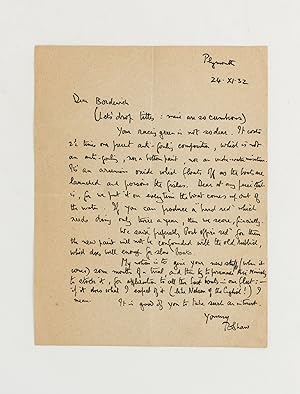 Plymouth
24.XI.32
Dear Borderick
(Let's drop titles: mine are so cumbrous)
Your racing green is not so dear. It costs
2½ times our present anti-fouling composition, which is not
an anti-fouling, nor a bottom paint, nor an
It's an arsenious oxide which floats off as the boats are
launched and poisons the fishes. Dear at any price that
is, for we put it on every time the boat comes up out of
the water. If you can produce a 'hard red' which
needs doing only twice a year, then we score, financially.
We said, 'preferably Post office red' for then
the new paint will not be confounded with the old rubbish,
which does well enough for slow boats
My notion is to give your new stuff (when it
comes) some months of a trial, and then try to persuade Air Ministry
to stock it, for application to all the fast boats in our fleet:—
if it does what I expect of it (like Nelson of the Captains!) I
mean. It is good of you to take such an interest.
Yours
T E Shaw